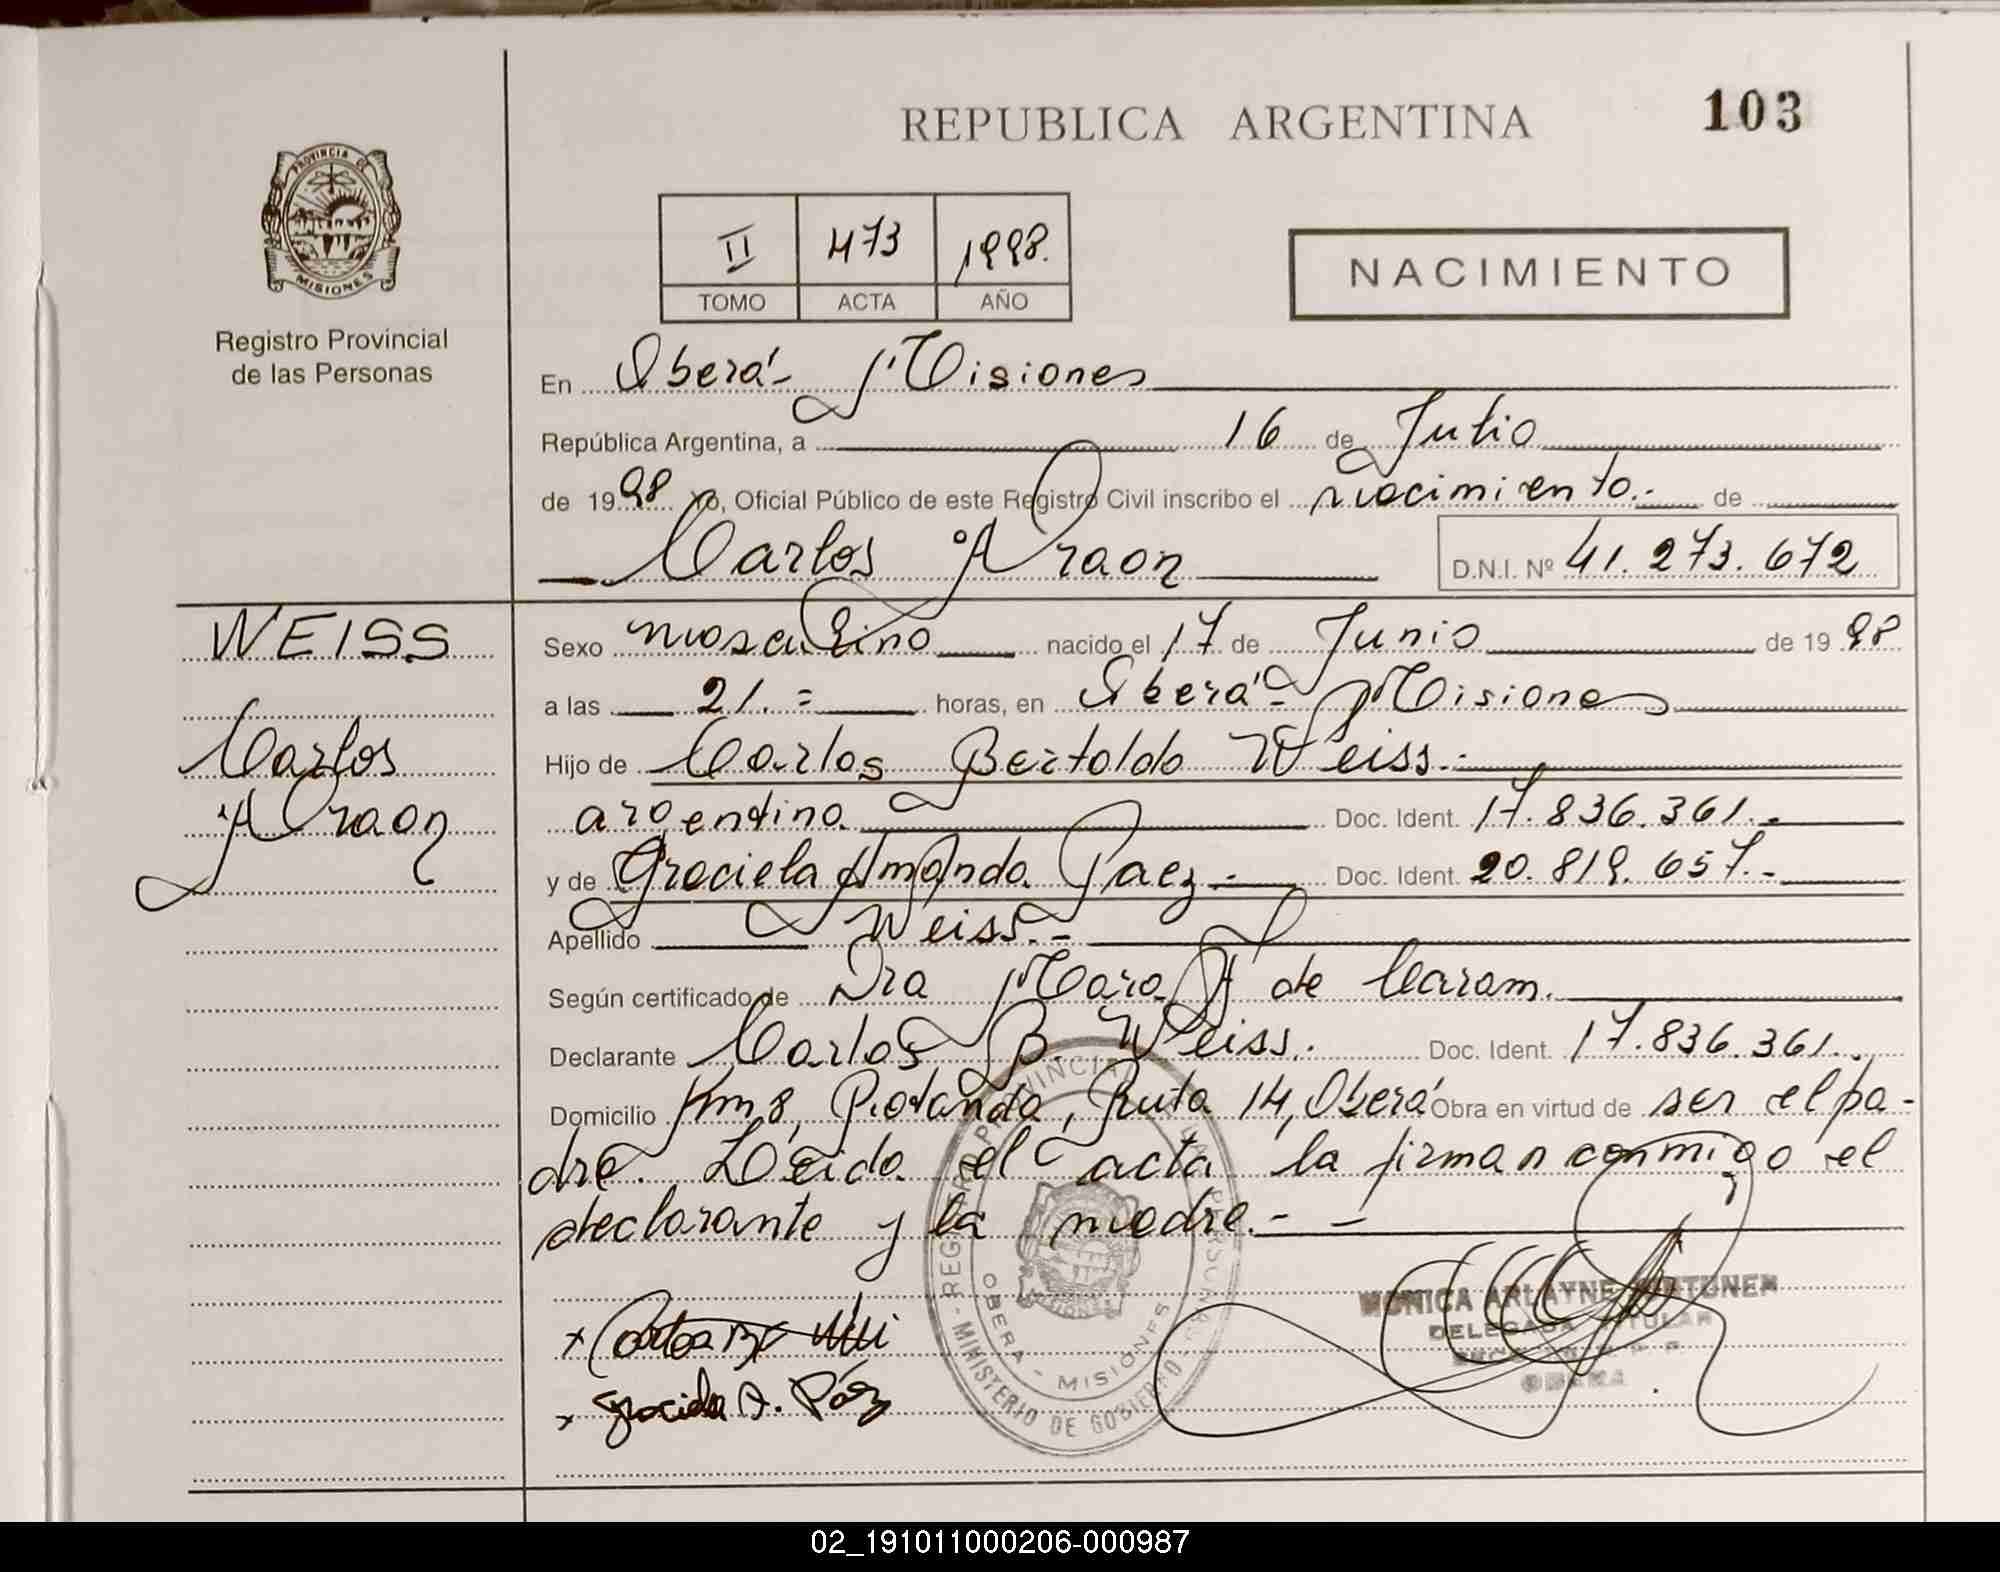 REPUBLICA ARGENTINA
103
PROVINCIA DE
MISIONES
Registro Provincial
de las Personas
II 473 1998.
TOMO ACTA AÑO
NACIMIENTO
En Oberá - Misiones
República Argentina, a 16 de Julio
de 1998 Yo, Oficial Público de este Registro Civil inscribo el nacimiento.- de
Carlos Araon D.N.I. Nº 41.273.672
WEISS
Carlos
Araon
Sexo masculino nacido el 17 de Junio de 1998
a las 21.= horas, en Oberá - Misiones
Hijo de Carlos Bertoldo Weiss.-
argentino Doc. Ident. 17.836.361.-
y de Graciela Amanda Paez.- Doc. Ident. 20.819.657.-
Apellido Weiss.-
Según certificado de Dra Mara de Caram.
Declarante Carlos B. Weiss. Doc. Ident. 17.836.361.
Domicilio Km 8, Rotonda, Ruta 14, Oberá Obra en virtud de ser el pa-
dre. Leida el acta la firman conmigo el
declarante y la madre.- -
x Carlos B.
x Graciela A. Páez
REGISTRO PROVINCIAL DE LAS PERSONAS
OBERA - MISIONES
MINISTERIO DE GOBIERNO
MONICA ARLAYNE
DELEGADA TITULAR
OBERA
02_191011000206-000987